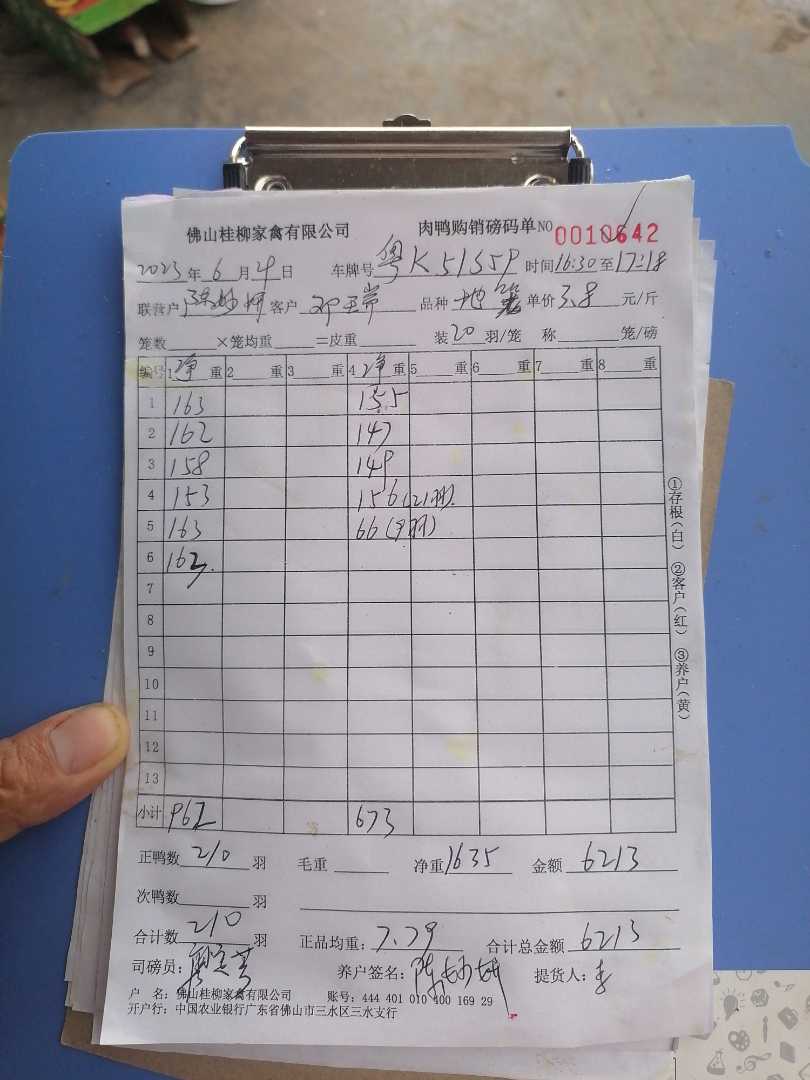 佛山桂柳家禽有限公司 肉鸭购销磅码单 NO 0010642
2023年6月4日 车牌号 粤K5155P 时间16:30至17:18
联营户 陈妙娟 客户 邓王常 品种 地 单价3.8元/斤
笼数 ×笼均重 =皮重 装20羽/笼 称 笼/磅
编号 1净重 2 重 3 重 4净重 5 重 6 重 7 重 8 重
1 163 155
2 162 147
3 158 149
4 153 156(21羽)
5 163 66(9羽)
6 162
7
8
9
10
11
12
13
小计 962 673
正鸭数210羽 毛重 净重1635 金额6213
次鸭数 羽
合计数210羽 正品均重:7.79 合计总金额6213
司磅员: 养户签名: 陈妙娟 提货人: 李
户 名:佛山桂柳家禽有限公司 账号:444 401 010 400 169 29
开户行:中国农业银行广东省佛山市三水区三水支行
①存根(白) ②客户(红) ③养户(黄)